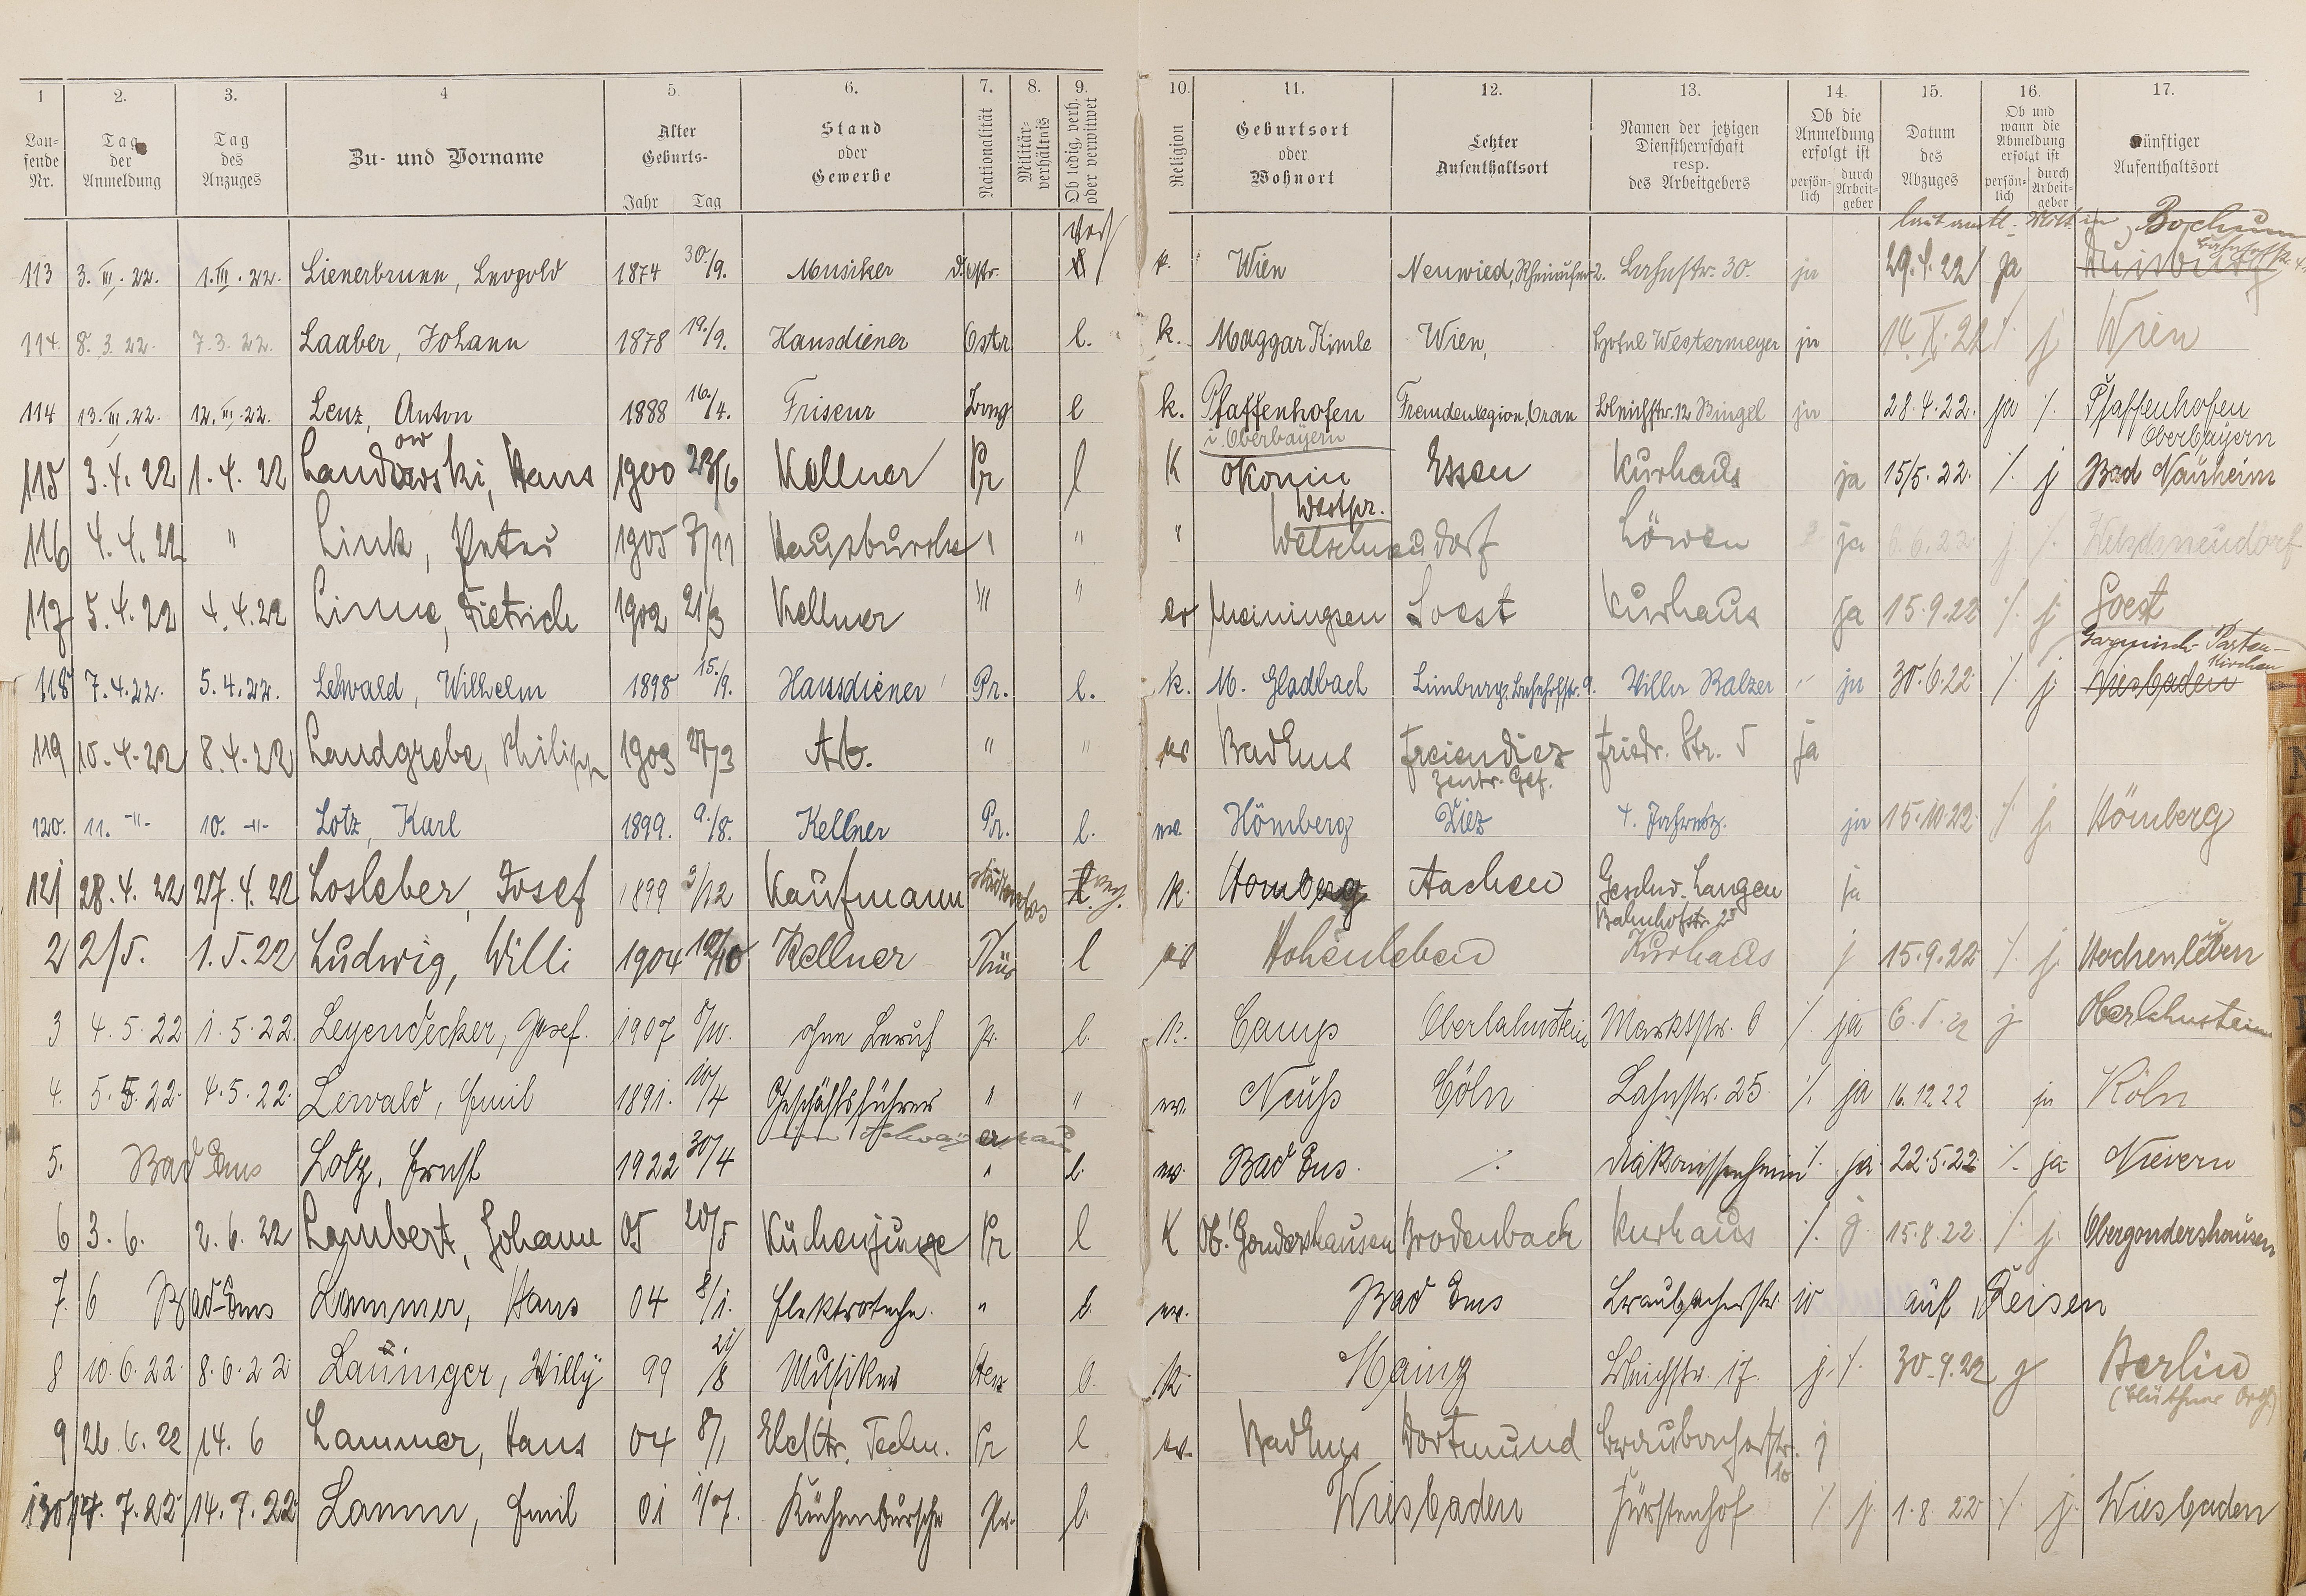 1 2. 3. 4 5. 6. 7. 8. 9. 10. 11. 12. 13. 14. 15. 16. 17.
Lau-
fende
Nr.
Tag
der
Anmeldung
Tag
des
Anzuges
Zu- und Vorname
Alter
Geburts-
Jahr Tag
Stand
oder
Gewerbe
Nationalität
Militär-
verhältnis
Ob ledig, verh.
oder verwitwet
Religion
Geburtsort
oder
Wohnort
Letzter
Aufenthaltsort
Namen der jetzigen
Dienstherrschaft
resp.
des Arbeitgebers
Ob die
Anmeldung
erfolgt ist
persön-
lich
durch
Arbeit-
geber
Datum
des
Abzuges
Ob und
wann die
Abmeldung
erfolgt ist
persön-
lich
durch
Arbeit-
geber
Künftiger
Aufenthaltsort
laut amtl. in Bochum
113 3. III. 22. 1. III. 22. Lienerbrunn, Leopold 1874 30./9. Musiker k. Wien Neuwied, Rheinufer 2. Lahnstr. 30. ja 29.4.22 ja Duisburg
114. 8. 3. 22. 7. 3. 22. Laaber, Johann 1878 19./9. Hausdiener Östr. l. k. Maggar Kimle Wien, Hotel Westermeyer ja 14. X. 22 /. j Wien
114 13. III. 22. 12. III. 22. Lenz, Anton 1888 16./4. Friseur l k. Pfaffenhofen Fremdenlegion, Oran Bleichstr. 12 Bingel ja 28.4.22. ja /. Pfaffenhofen
i. Oberbayern Oberbayern
115 3.4.22 1.4.22 Landowski, Hans 1900 23/6 Kellner Pr l K Okonin Essen Kurhaus ja 15/5.22. /. j Bad Nauheim
Westpr.
116 4.4.22 " Link, Peter 1905 7/11 Hausbursche " " " Welschneudorf Löwen ja 6.6.22 j /. Welschneudorf
117 5.4.22 4.4.22 Linne, Dietrich 1902 21/3 Kellner " " ev Meiningsen Soest Kurhaus ja 15.9.22 /. j. Soest
Garmisch-Parten-
kirchen
118 7.4.22. 5.4.22. Lehwald, Wilhelm 1898 15./9. Hausdiener Pr. l. k. M. Gladbach Limburg, Bahnhofstr. 9. Villa Balzer ja 30.6.22 /. j. Wiesbaden
119 10.4.22 8.4.22 Landgrebe, Philipp 1903 27/3 Arb. " " ev Bad Ems Freiendiez Friedr. Str. 5 ja
Zentr. Gef.
120. 11. -"- 10. -"- Lotz, Karl 1899. 9./8. Kellner Pr. l. ev. Hömberg Diez 4. Jahresz. ja 15.10.22 /. j. Hömberg
121 28.4.22 27.4.22 Losleber, Josef 1899 3/12 Kaufmann k. Homberg Aachen Geschw. Langen ja
Bahnhofstr. 25
2 2/5. 1.5.22 Ludwig, Willi 1904 12/10 Kellner Thür l ev Hohenleben Kurhaus j 15.9.22 /. j. Hochenleben
3 4.5.22 1.5.22. Leyendecker, Josef. 1907 5/10. ohne Beruf Pr. l. k. Camp Oberlahnstein Marktstr. 6 /. ja 6.5.22 j Oberlahnstein
4. 5.5.22. 4.5.22. Lewald, Emil 1891. 10/4 Geschäftsführer " " ev. Neuß Cöln Lahnstr. 25. /. ja 16.12.22 ja Köln
5. Bad Ems Lotz, Ernst 1922 30/4 " l. ev. Bad Ems. /. Diakonissenheim /. ja 22.5.22 /. ja Nievern
6 3.6. 2.6.22 Lambert, Johann 05 20/5 Küchenjunge Pr l K Ob. Gondershausen Brodenbach Kurhaus /. j. 15.8.22. /. j. Obergondershausen
7. 6 Bad-Ems Lammer, Hans 04 8/1. Elektrotechn. " l. ev. Bad Ems Braubacherstr. 10 auf Reisen
8 10.6.22. 8.6.22 Lauinger, Willy 99 21/8 Musiker Hess l. k. Mainz Bleichstr. 17. j. /. 30.9.22 j Berlin
(Blüthner Orch.)
9 26.6.22 14.6 Lammer, Hans 04 8/1 Elektr. Techn. Pr l ev. Bad Ems Dortmund Braubacherstr. j
10
130 17.7.22 14.7.22 Lamm, Emil 01 1/7. Küchenbursche Pr. l. Wiesbaden Fürstenhof /. j. 1.8.22 /. j. Wiesbaden